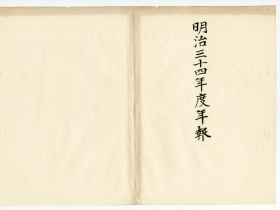 明治三十四年度年報